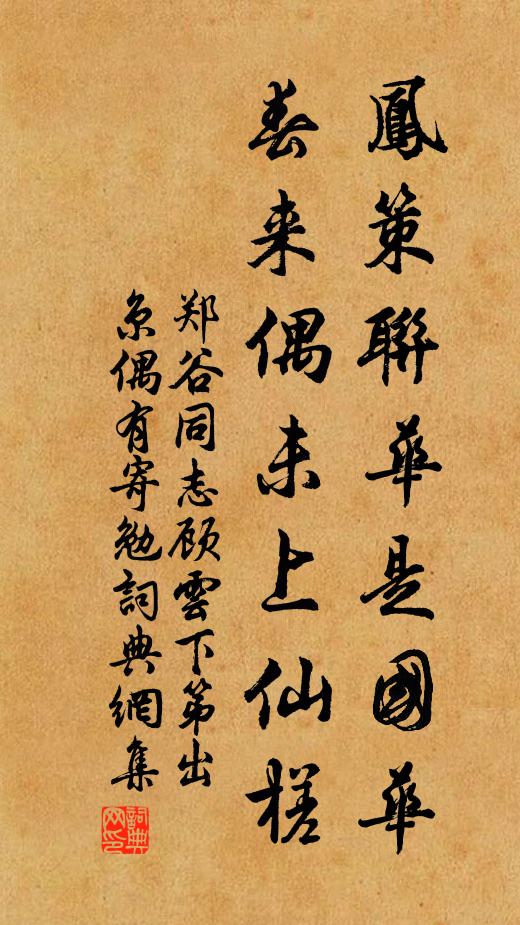 鳳策聯華是國華
春来偶未上仙槎
郑谷同志顾雲下第出
京偶有寄勉詞典網集
詞典网印